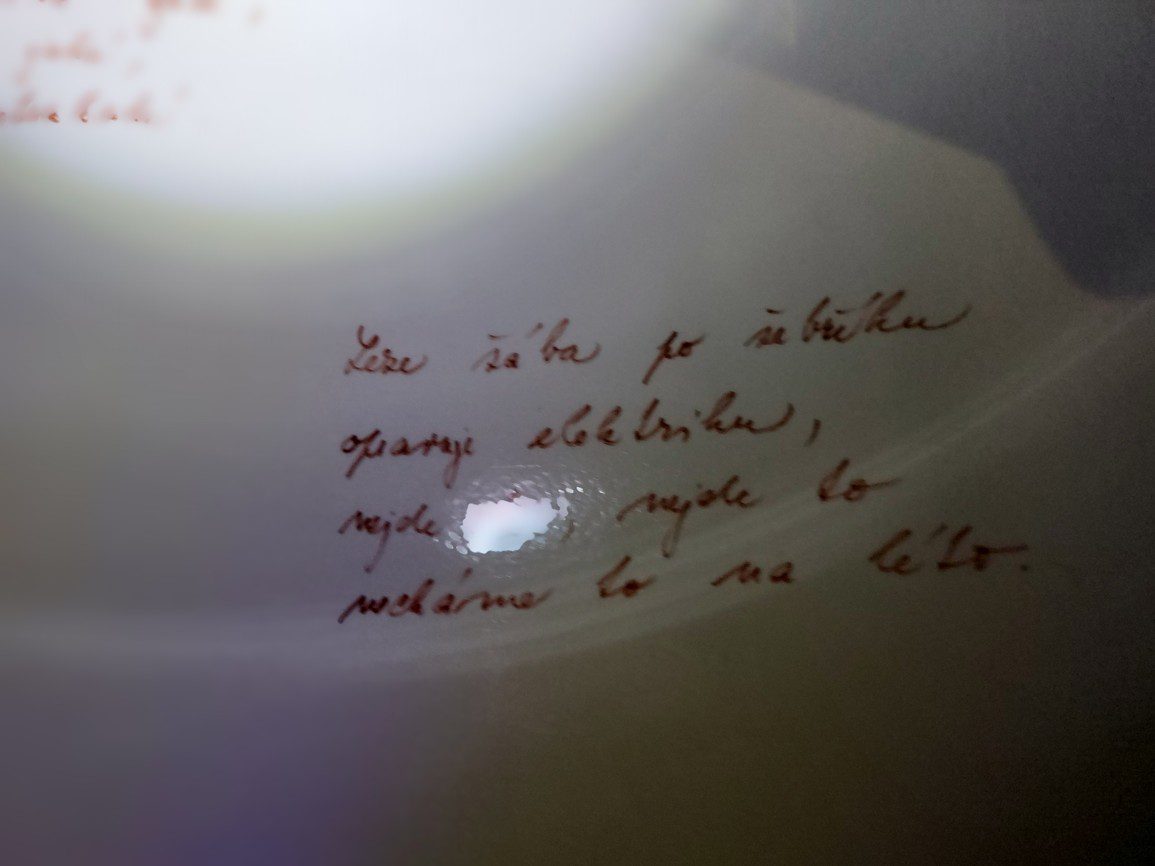 Leze žába po žebříku
opravuje elektriku,
nejde , nejde to
necháme to na léto.